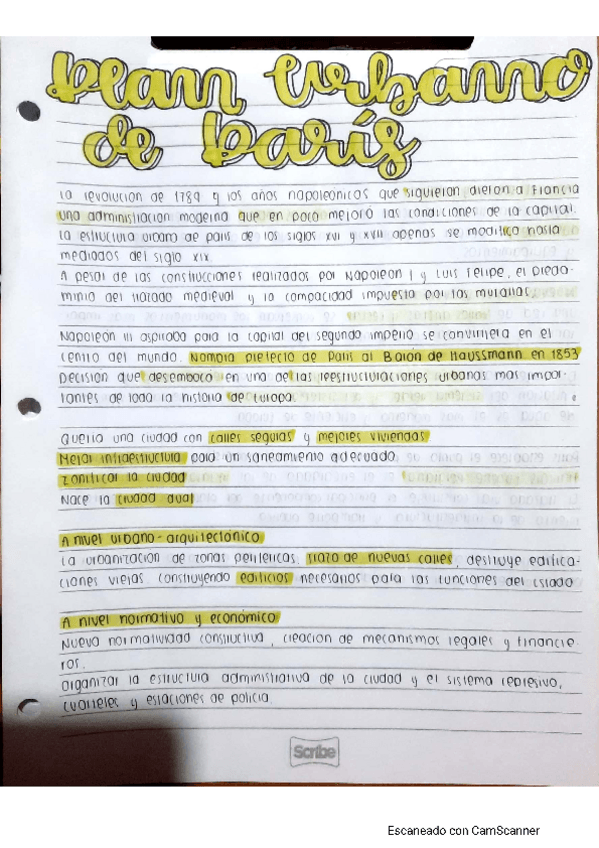 Plan Urbano
de París
La revolución de 1789 y los años napoleónicos que siguieron dieron a Francia
una administración moderna que en poco mejoró las condiciones de la capital.
La estructura urbana de París de los siglos XVI y XVII apenas se modificó hasta
mediados del siglo XIX
A pesar de las construcciones realizadas por Napoleón I y Luis Felipe, el predo-
minio del trazado medieval y la compacidad impuesta por las murallas.
Napoleón III aspiraba para la capital del segundo imperio se convirtiera en el
centro del mundo. Nombra prefecto de París al Barón de Haussmann en 1853
Decisión que desembocó en una de las reestructuraciones urbanas mas impor-
tantes de toda la historia de Europa.
Quería una ciudad con calles seguras y mejores viviendas
Mejor infraestructura para un saneamiento adecuado
Zonificar la ciudad
Nace la ciudad dual
A nivel urbano-arquitectónico
La urbanización de zonas periféricas, trazo de nuevas calles, destruye edifica-
ciones viejas construyendo edificios necesarios para las funciones del Estado
A nivel normativo y económico
Nueva normatividad constructiva, creación de mecanismos legales y financie-
ros.
Organizar la estructura administrativa de la ciudad y el sistema represivo,
cuarteles y estaciones de policía.
Scribe
Escaneado con CamScanner